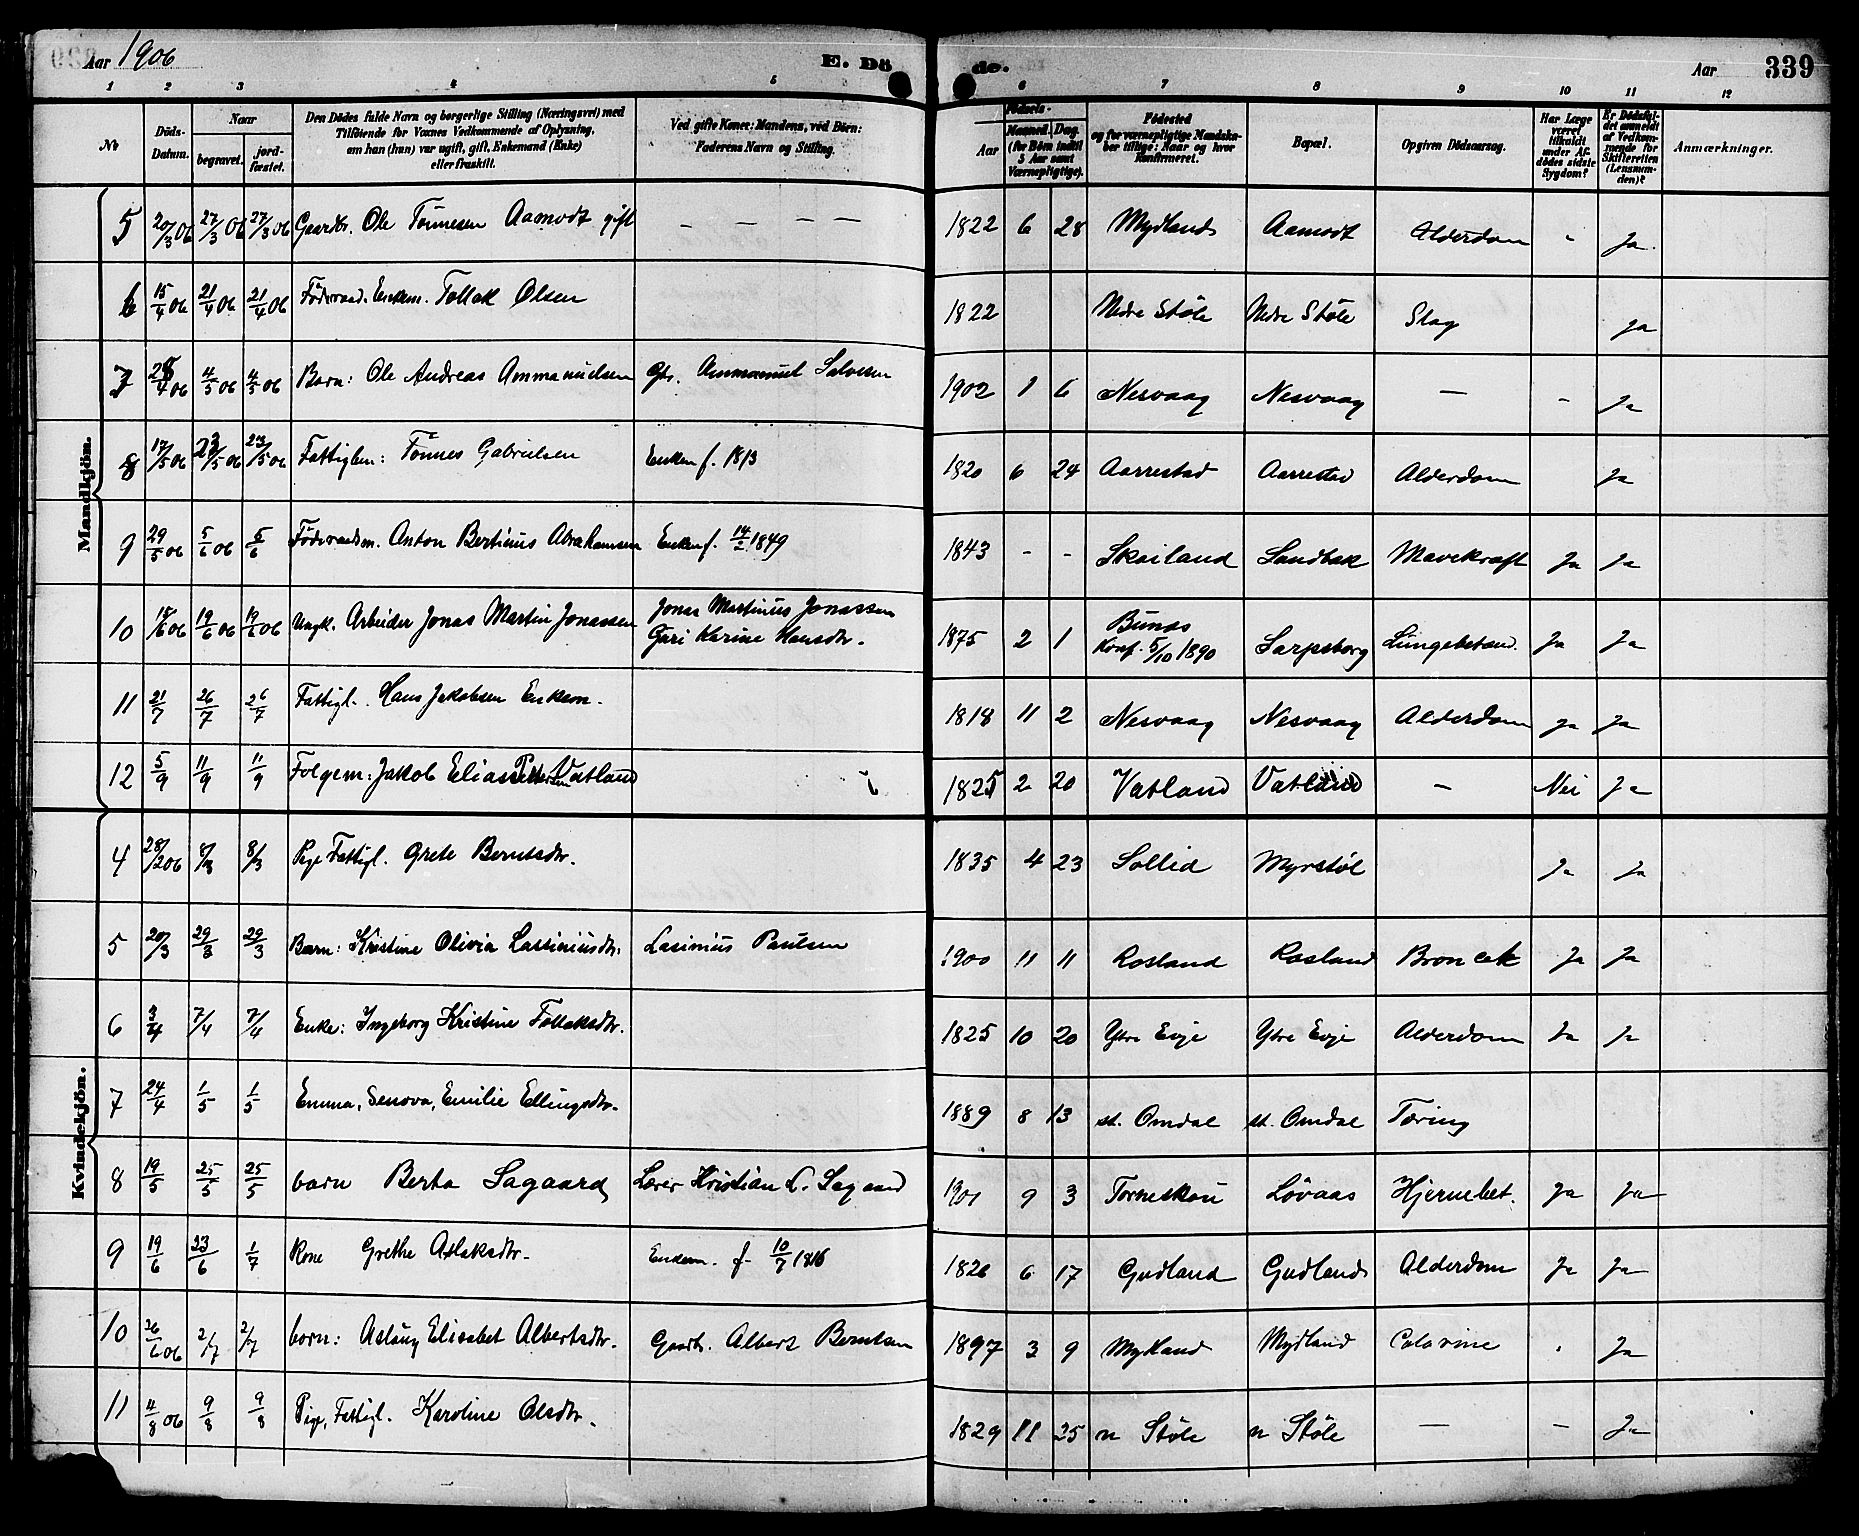 Aar 1906
E. Dö
de.
Aar
339
1 2 3 4 5 6 7 8 9 10 11 12
No
Döds-Datum.
Naar
begravet.
jord-fæstet.
Den Dödes fulde Navn og borgerlige Stilling (Næringsvei) med
Tilföiende for Voxnes Vedkommende af Oplysning,
om han (hun) var ugift, gift, Enkemand (Enke)
eller fraskilt.
Ved gifte Koner: Mandens, ved Börn:
Faderens Navn og Stilling.
Födsels-
Aar
Maaned. Dag.
(for Börn indtil
5 Aar samt
Værnepligtige).
Födested
og for værnepligtige Mandska-
ber tillige: Naar og hvor
Konfirmeret.
Bopæl.
Opgiven Dödsaarsag.
Har Læge
været
tilkaldt
under Af-
dödes sidste
Sygdom?
Er Dödsfal-
det anmeldt
af Vedkom-
mende for
Skifteretten
(Lensman-
den)?
Anmærkninger.
Mandkjön.
5 20/3 06 27/3 06 27/3 06 Gaardbr. Ole Tönnesen Aamodt gift — — — — 1822 6 28 Mydland Aamodt Alderdom - Ja
6 15/4 06 21/4 06 21/4 06 Föderaad. Enkem. Tollak Olsen 1822 Nedre Stöle Nedre Stöle Slag Ja
7 4/5 06 4/5 06 Barn: Ole Andreas Ammanuelsen Gbr. Ammanuel Salvesen 1902 1 6 Nesvaag Nesvaag — - Ja
8 17/5 06 23/5 06 23/5 06 Fattiglem: Tönnes Gabrielsen Enkem f. 1813 1820 6 24 Aarrestad Aarrestad Alderdom Ja
9 29/5 06 5/6 06 5/6 Föderaadsm. Anton Bertinius Abrahamsen Enkem f. 14/2 1849 1843 - - Skailand Sandbak Mavekræft Ja Ja
10 15/6 06 19/6 06 19/6 06 Ungk. Arbeider Jonas Martin Jonassen Jonas Martinius Jonassen
Guri Karine Hansdtr. 1875 2 1 Bunes
Konf. 5/10 1890 Sarpsborg Lungebetænd. Ja Ja
11 21/7 26/7 26/7 Fattigl. Hans Jakobsen Enkem. 1818 11 2 Nesvaag Nesvaag Alderdom Ja Ja
12 5/9 11/9 11/9 Folgem: Jakob Elias Vatland 1825 2 20 Vatland Vatland — Nei Ja
Kvindekjön.
4 28/2 06 8/3 8/3 Pige Fattigl. Grete Berntsdtr. 1835 4 23 Sollid Myrstöl Ja Ja
5 20/3 29/3 29/3 Barn: Kristine Olivia Lassiniusdtr. Lasinius Paulsen 1900 11 11 Rosland Rosland Broncek Ja Ja
6 3/4 7/4 7/4 Enke: Ingeborg Kristine Tollaksdtr. 1825 10 20 Ytre Evje Ytre Evje Alderdom Ja Ja
7 24/4 1/5 1/5 Emma, Senova, Emilie Ellingsdtr. 1889 8 13 st. Omdal st. Omdal Tæring
8 19/5 25/5 25/5 barn Berta Sagaard Lærer Kristian L. Sagaard 1901 9 3 Torneskau Lövaas Hjernebet. Ja Ja
9 19/6 23/6 1/7 Kone Grethe Aslaksdtr. Enkem. f. 10/7 1816 1826 6 17 Gudland Gudland Alderdom Ja Ja
10 26/6 06 2/7 2/7 barn: Aslaug Elisabet Albertsdtr. Gaardbr. Albert Berntsen 1897 3 9 Mydland Mydland Colorine . Ja
11 4/8 06 9/8 9/8 Pige, Fattigl. Karoline Olsdtr. 1829 11 25 n Stöle n Stöle — - Ja